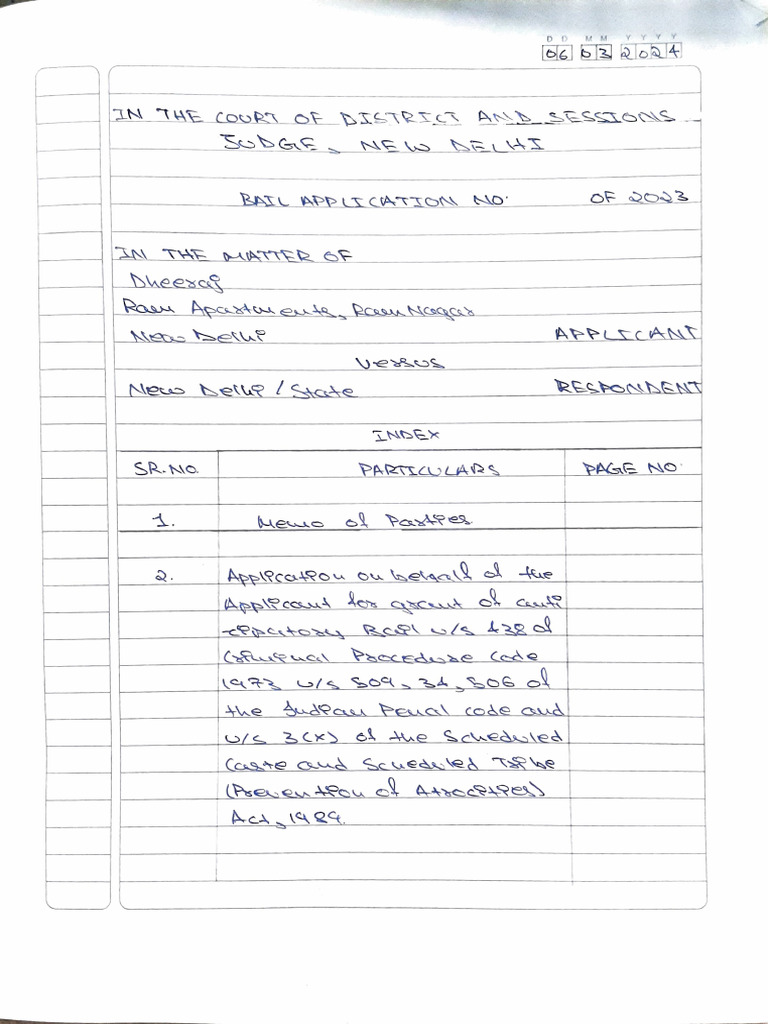 D D M M Y Y Y Y
06 03 2024
IN THE COURT OF DISTRICT AND SESSIONS
JUDGE, NEW DELHI
BAIL APPLICATION NO. OF 2023
IN THE MATTER OF
Dheeraj
Ram Apartments, Ram Nagar
New Delhi APPLICANT
Versus
New Delhi / State RESPONDENT
INDEX
SR.NO. PARTICULARS PAGE NO.
1. Memo of Parties
2. Application on behalf of the
Applicant for grant of anti
-cipatory Bail u/s 438 of
Criminal Procedure Code
1973 u/s 509, 34, 506 of
the Indian Penal code and
u/s 3(x) of the Scheduled
Caste and Scheduled Tribe
(Prevention of Atrocities)
Act, 1989.